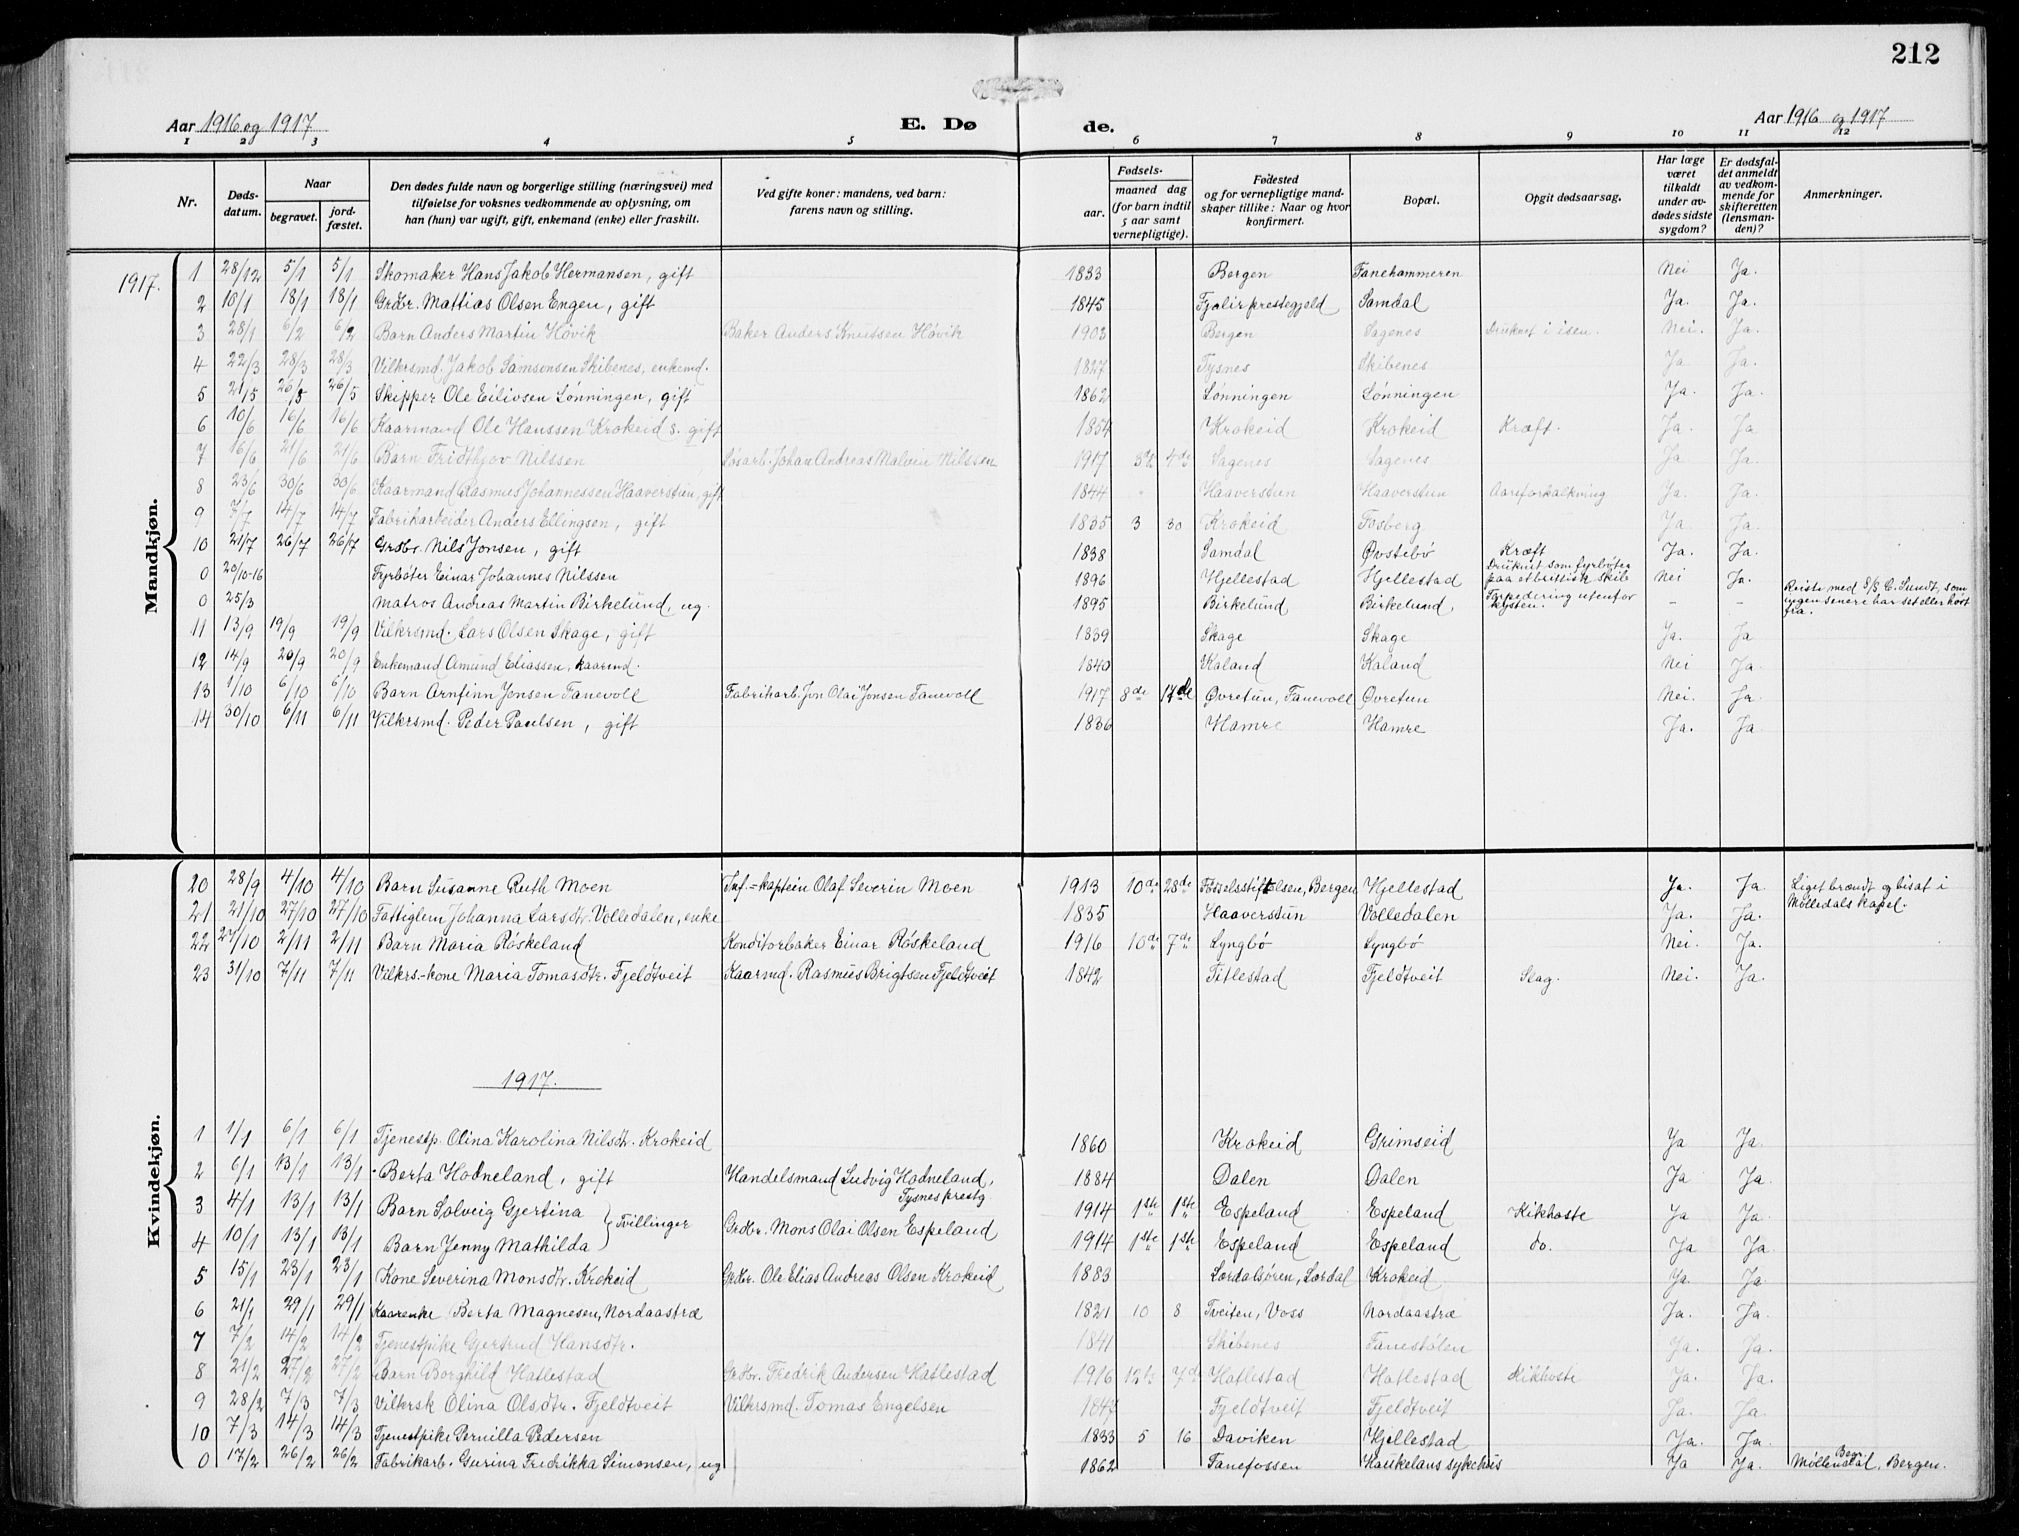 212
Aar 1916 og 1917
E. Døde.
Aar 1916 og 1917
1 2 3 4 5 6 7 8 9 10 11 12
Nr. | Døds-datum. | Naar begravet. | jord-fæstet. | Den dødes fulde navn og borgerlige stilling (næringsvei) med tilføielse for voksnes vedkommende av oplysning, om han (hun) var ugift, gift, enkemand (enke) eller fraskilt. | Ved gifte koner: mandens, ved barn: farens navn og stilling. | Fødsels- aar. | maaned dag (for barn indtil 5 aar samt vernepligtige). | Fødested og for vernepligtige mandskaper tillike: Naar og hvor konfirmert. | Bopæl. | Opgit dødsaarsag. | Har læge været tilkaldt under avdødes sidste sygdom? | Er dødsfaldet anmeldt av vedkommende for skifteretten (lensmanden)? | Anmerkninger.
Mandkjøn.
1917.
1 28/12 5/1 5/1 Skomaker Hans Jakob Hermansen, gift 1833 Bergen Fanehammeren Nei Ja.
2 10/1 18/1 18/1 Grdbr. Mattias Olsen Engen, gift 1845 Fjalir prestegjeld Samdal Ja. Ja.
3 28/1 6/2 6/2 Barn Anders Martin Høvik Baker Anders Knutsen Høvik 1903 Bergen Sagenes Druknet i isen. Nei. Ja.
4 22/3 28/3 28/3 Vilkrsmd. Jakob Samsonsen Skibenes, enkemd. 1827 Tysnes Skibenes Ja Ja.
5 21/5 26/5 26/5 Skipper Ole Eilivsen Lønningen, gift 1862 Lønningen Lønningen Ja. Ja.
6 10/6 16/6 16/6 Kaarmand Ole Hanssen Krokeid s. gift 1854 Krokeid Krokeid Kræft. Ja. Ja
7 16/6 21/6 21/6 Barn Fridthjov Nilssen Løsarb. Johan Andreas Malvin Nilssen 1917 3de 4de Sagenes Sagenes Ja Ja.
8 23/6 30/6 30/6 Kaarmand Rasmus Johannessen Haaverstun, gift 1844 Haaverstun Haaverstun Aareforkalkning Ja. Ja.
9 7/7 14/7 14/7 Fabrikarbeider Anders Ellingsen, gift 1835 3 30 Krokeid Fosberg Ja. Ja.
10 21/7 26/7 26/7 Grdbr. Nils Jonsen, gift 1838 Samdal Øvstebø Kræft Ja. Ja.
0 20/10-16 Fyrbøter Einar Johannes Nilssen 1896 Hjellestad Hjellestad Druknet som fyrbøter paa et brittisk skib Nei Ja.
0 25/3 Matros Andreas Martin Birkelund, ug. 1895 Birkelund Birkelund, Torpedering utenfor kysten. - - Reiste med S/S C. Sundt, som ingen senere har set eller hørt fra.
11 13/9 19/9 19/9 Vilkrsmd. Lars Olsen Skage, gift 1839 Skage Skage Ja. Ja
12 14/9 20/9 20/9 Enkemand Amund Eliassen, kaarmd. 1840 Kaland Kaland Nei Ja.
13 1/10 6/10 6/10 Barn Arnfinn Jonsen Fanevoll Fabrikarb. Jon Olai Jonsen Fanevoll 1917 8de 17de Øvretun, Fanevoll Øvretun Nei. Ja.
14 30/10 6/11 6/11 Vilkrsmd. Peder Paulsen, gift 1836 Hamre Hamre Ja. Ja
Kvindekjøn.
20 28/9 4/10 4/10 Barn Susanne Ruth Moen Inf.-kaptein Olaf Severin Moen 1913 10de 28de Fødselsstiftelsen, Bergen Hjellestad Ja. Ja. Liget brændt og bisat i Mølledals kapel.
21 21/10 27/10 27/10 Fattiglem Johanna Larsdtr. Volledalen, enke 1835 Haaverstun Volledalen Ja. Ja.
22 27/10 2/11 2/11 Barn Maria Røskeland Konditorbaker Einar Røskeland 1916 10de 7de Lyngbø Lyngbø Nei. Ja.
23 31/10 7/11 7/11 Vilkrs.-kone Maria Tomasdtr. Fjeldtveit Kaarmd. Rasmus Brigtsen Fjeldtveit 1842 Titlestad Fjeldtveit Slag. Nei. Ja.
1917.
1 1/1 6/1 6/1 Tjenestp. Olina Karolina Nilsdtr. Krokeid 1860 Krokeid Grimseid Ja Ja.
2 6/1 13/1 13/1 Berta Hodneland, gift Handelsmand Ludvig Hodneland, Tysnes prestg 1884 Dalen Dalen Ja Ja.
3 4/1 13/1 13/1 Barn Solveig Gjertina } Tvillinger 1914 1ste 1ste Espeland Espeland Kikhoste Ja Ja.
4 10/1 13/1 13/1 Barn Jenny Mathilda Grdbr. Mons Olai Olsen Espeland 1914 1ste 1ste Espeland Espeland do. Ja Ja.
5 15/1 23/1 23/1 Kone Severina Monsdtr. Krokeid Grdbr. Ole Elias Andreas Olsen Krokeid 1883 Lærdalsøren, Lærdal Krokeid Ja. Ja.
6 21/1 29/1 29/1 Kaarenke Berta Magnesen, Nordaastræ 1821 10 8 Tveiten, Voss Nordaastræ Ja. Ja.
7 7/2 14/2 14/2 Tjenestpike Gjertrud Hansdtr. 1841 Skibenes Fanestølen Ja. Ja.
8 21/2 27/2 27/2 Barn Borghild Hatlestad Grdbr. Fredrik Andersen Hatlestad 1916 12te 7de Hatlestad Hatlestad Kikhoste Ja. Ja.
9 28/2 7/3 7/3 Vilkrsk Olina Olsdtr. Fjeldtveit Vilkrsmd. Tomas Engelsen 1847 Fjeldtveit Fjeldtveit Ja. Ja.
10 7/3 14/3 14/3 Tjenestpike Pernilla Pedersen 1833 5 16 Daviken Hjellestad Ja. Ja.
0 17/2 26/2 26/2 Fabrikarb. Gurina Fredrikka Simonsen, ug 1862 Fanefossen Haukelans sykehus Ja Ja. Begr. Møllendal, Bergen.